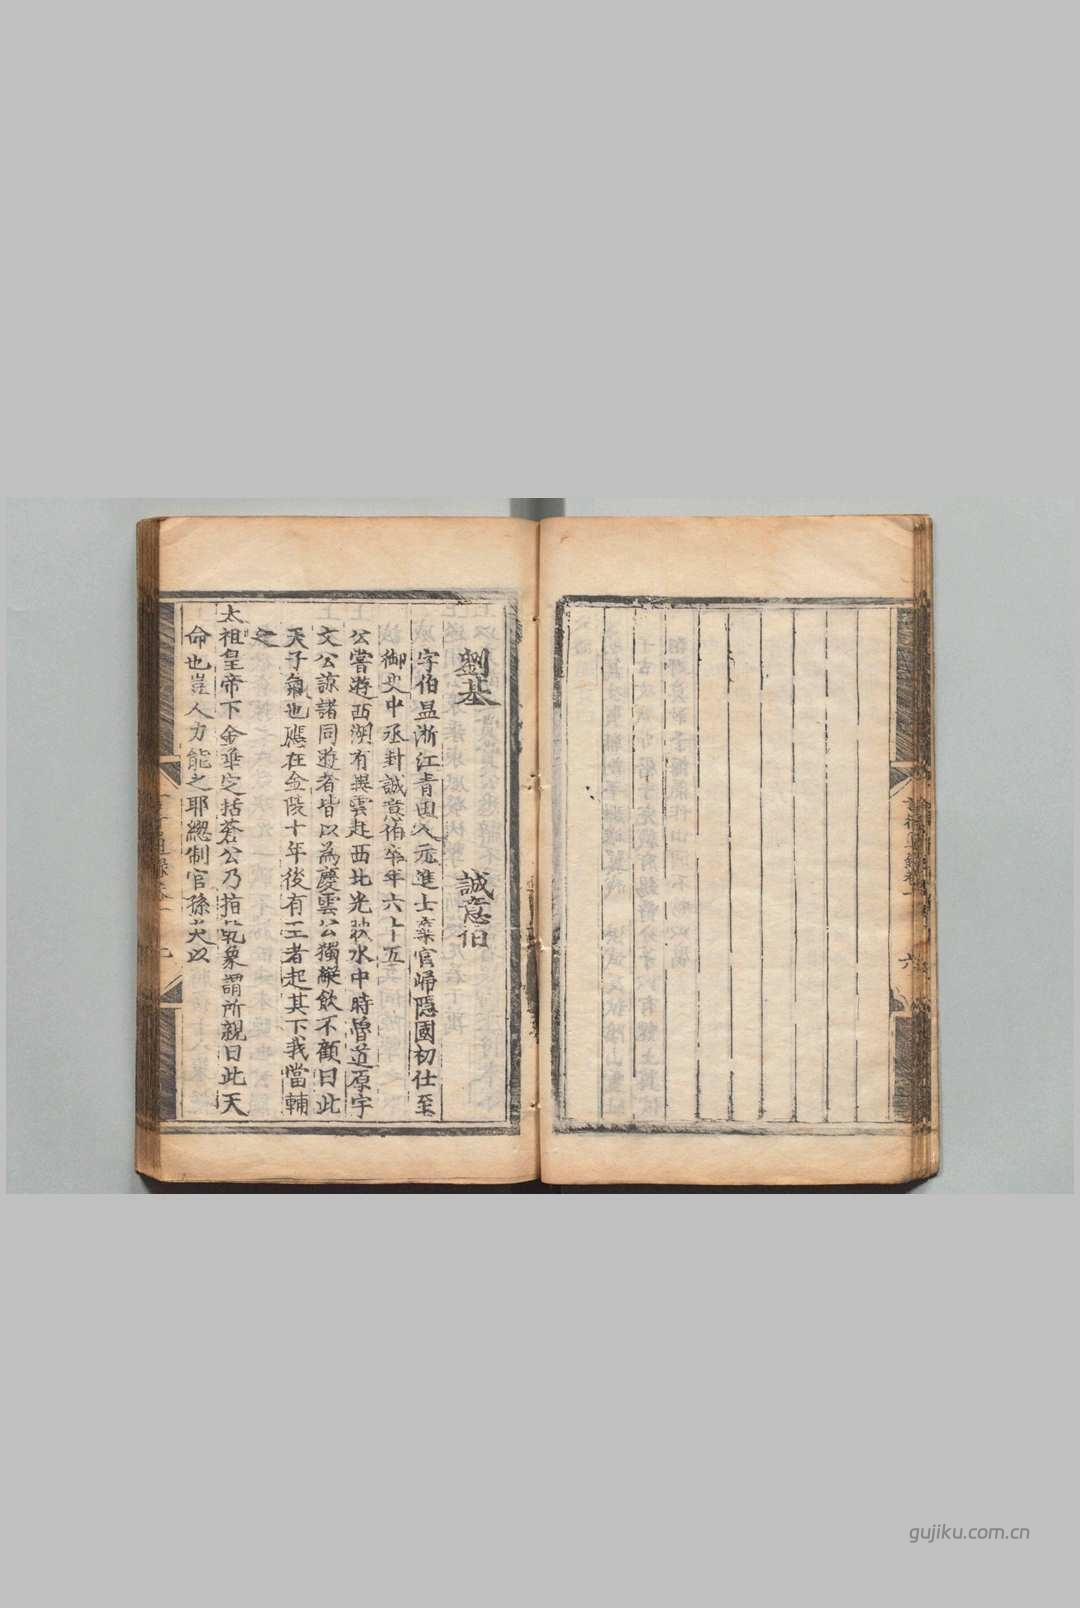 劉基　誠意伯
字伯昷浙江青田人元進士棄官歸隱國初仕至
御史中丞封誠意伯卒年六十五
公嘗遊西湖有異雲起西北光映水中時魯道原宇
文公諒諸同遊者皆以為慶雲公獨縱飲不顧曰此
天子氣也應在金陵十年後有王者起其下我當輔
之
太祖皇帝下金華定括蒼公乃指乾象謂所親曰此天
命也豈人力能之耶總制官孫炎以
gujiku.com.cn